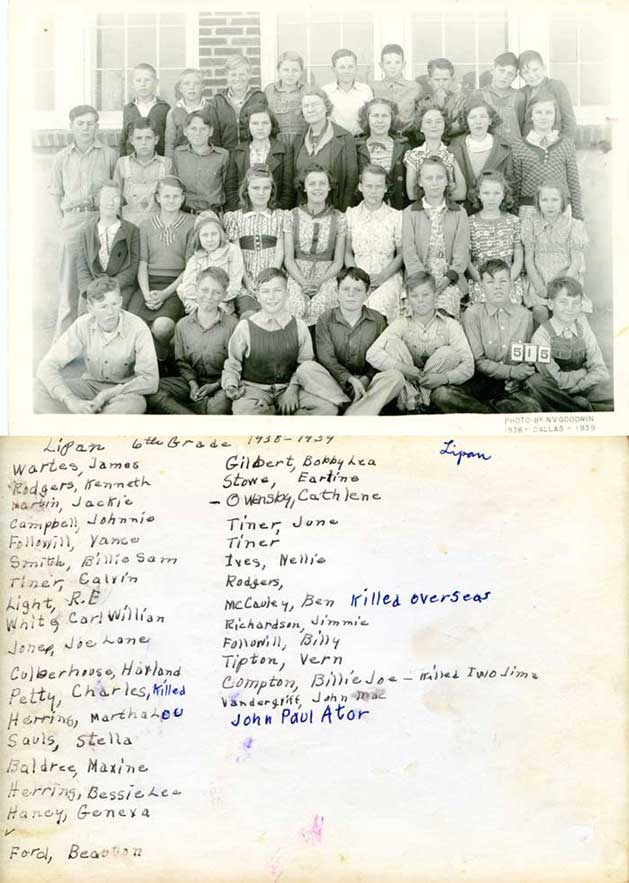 515
PHOTO-BY-N.V.GOODWIN
1938 - DALLAS - 1939
Lipan 6th Grade 1938-1939
Lipan
Wartes, James
Rodgers, Kenneth
Martin, Jackie
Campbell, Johnnie
Followill, Vance
Smith, Billie Sam
Tiner, Calvin
Light, R.E
White, Carl Willian
Jones, Joe Lane
Culberhouse, Harland
Petty, Charles, Killed
Herring, Martha Lou
Sauls, Stella
Baldree, Maxine
Herring, Bessie Lee
Haney, Geneva
Ford, Beauton
Gilbert, Bobby Lea
Stowe, Eartine
- Owensby, Cathlene
Tiner, June
Tiner
Ives, Nellie
Rodgers,
McCauley, Ben Killed overseas
Richardson, Jimmie
Followill, Billy
Tipton, Vern
Compton, Billie Joe - Killed Iwo Jima
Vandergriff, John Mac
John Paul Ator